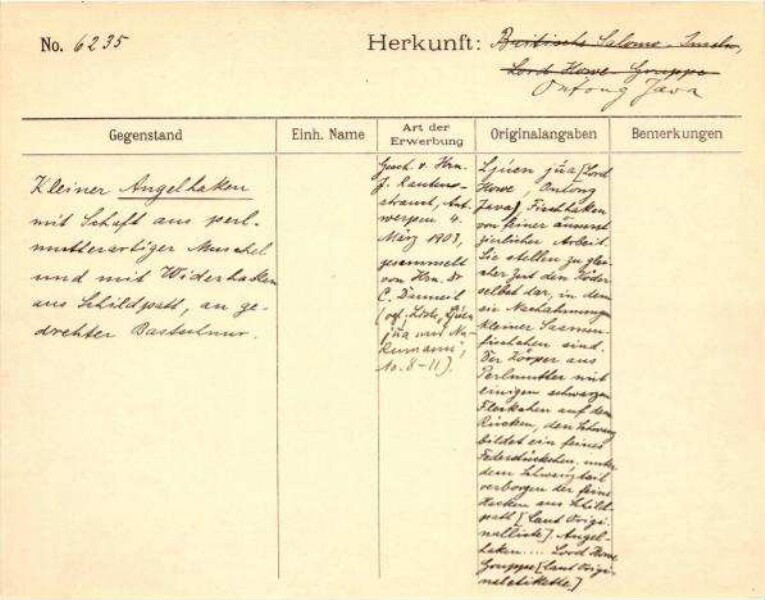 No. 6235
Herkunft: Britische Salomo-Inseln,
Lord Howe-Gruppe
Ontong Java
Gegenstand
Einh. Name
Art der
Erwerbung
Originalangaben
Bemerkungen
Kleiner Angelhaken
mit Schaft aus perl-
mutterartiger Muschel
und mit Widerhaken
aus Schildpatt, an ge-
drehter Bastschnur.
Gesch. v. Hrn.
J. Rauten-
strauch, Ant-
werpen 4.
März 1903,
gesammelt
von Hrn. Dr
C. Danneil
(vgl. Liste, Ljuen
jüa und Nu-
kumanu,
No. 8-11).
Ljuen jüa [Lord
Howe, Ontong
Java] Fischhaken
von feiner äusserst
zierlicher Arbeit.
Sie stellen zu glei-
cher Zeit den Köder
selbst dar, in dem
sie Nachahmungen
kleiner
fischchen sind.
Der Körper aus
Perlmutter mit
einigen schwarzen
Fleckchen auf dem
Rücken, den Schwanz
bildet ein feines
Federstückchen, unter
dem Schwanzteil
verborgen der feine
Hacken aus Schild-
patt [laut Origi-
nalliste]. Angel-
haken.... Lord Howe
Gruppe [laut Origi-
naletikette.]